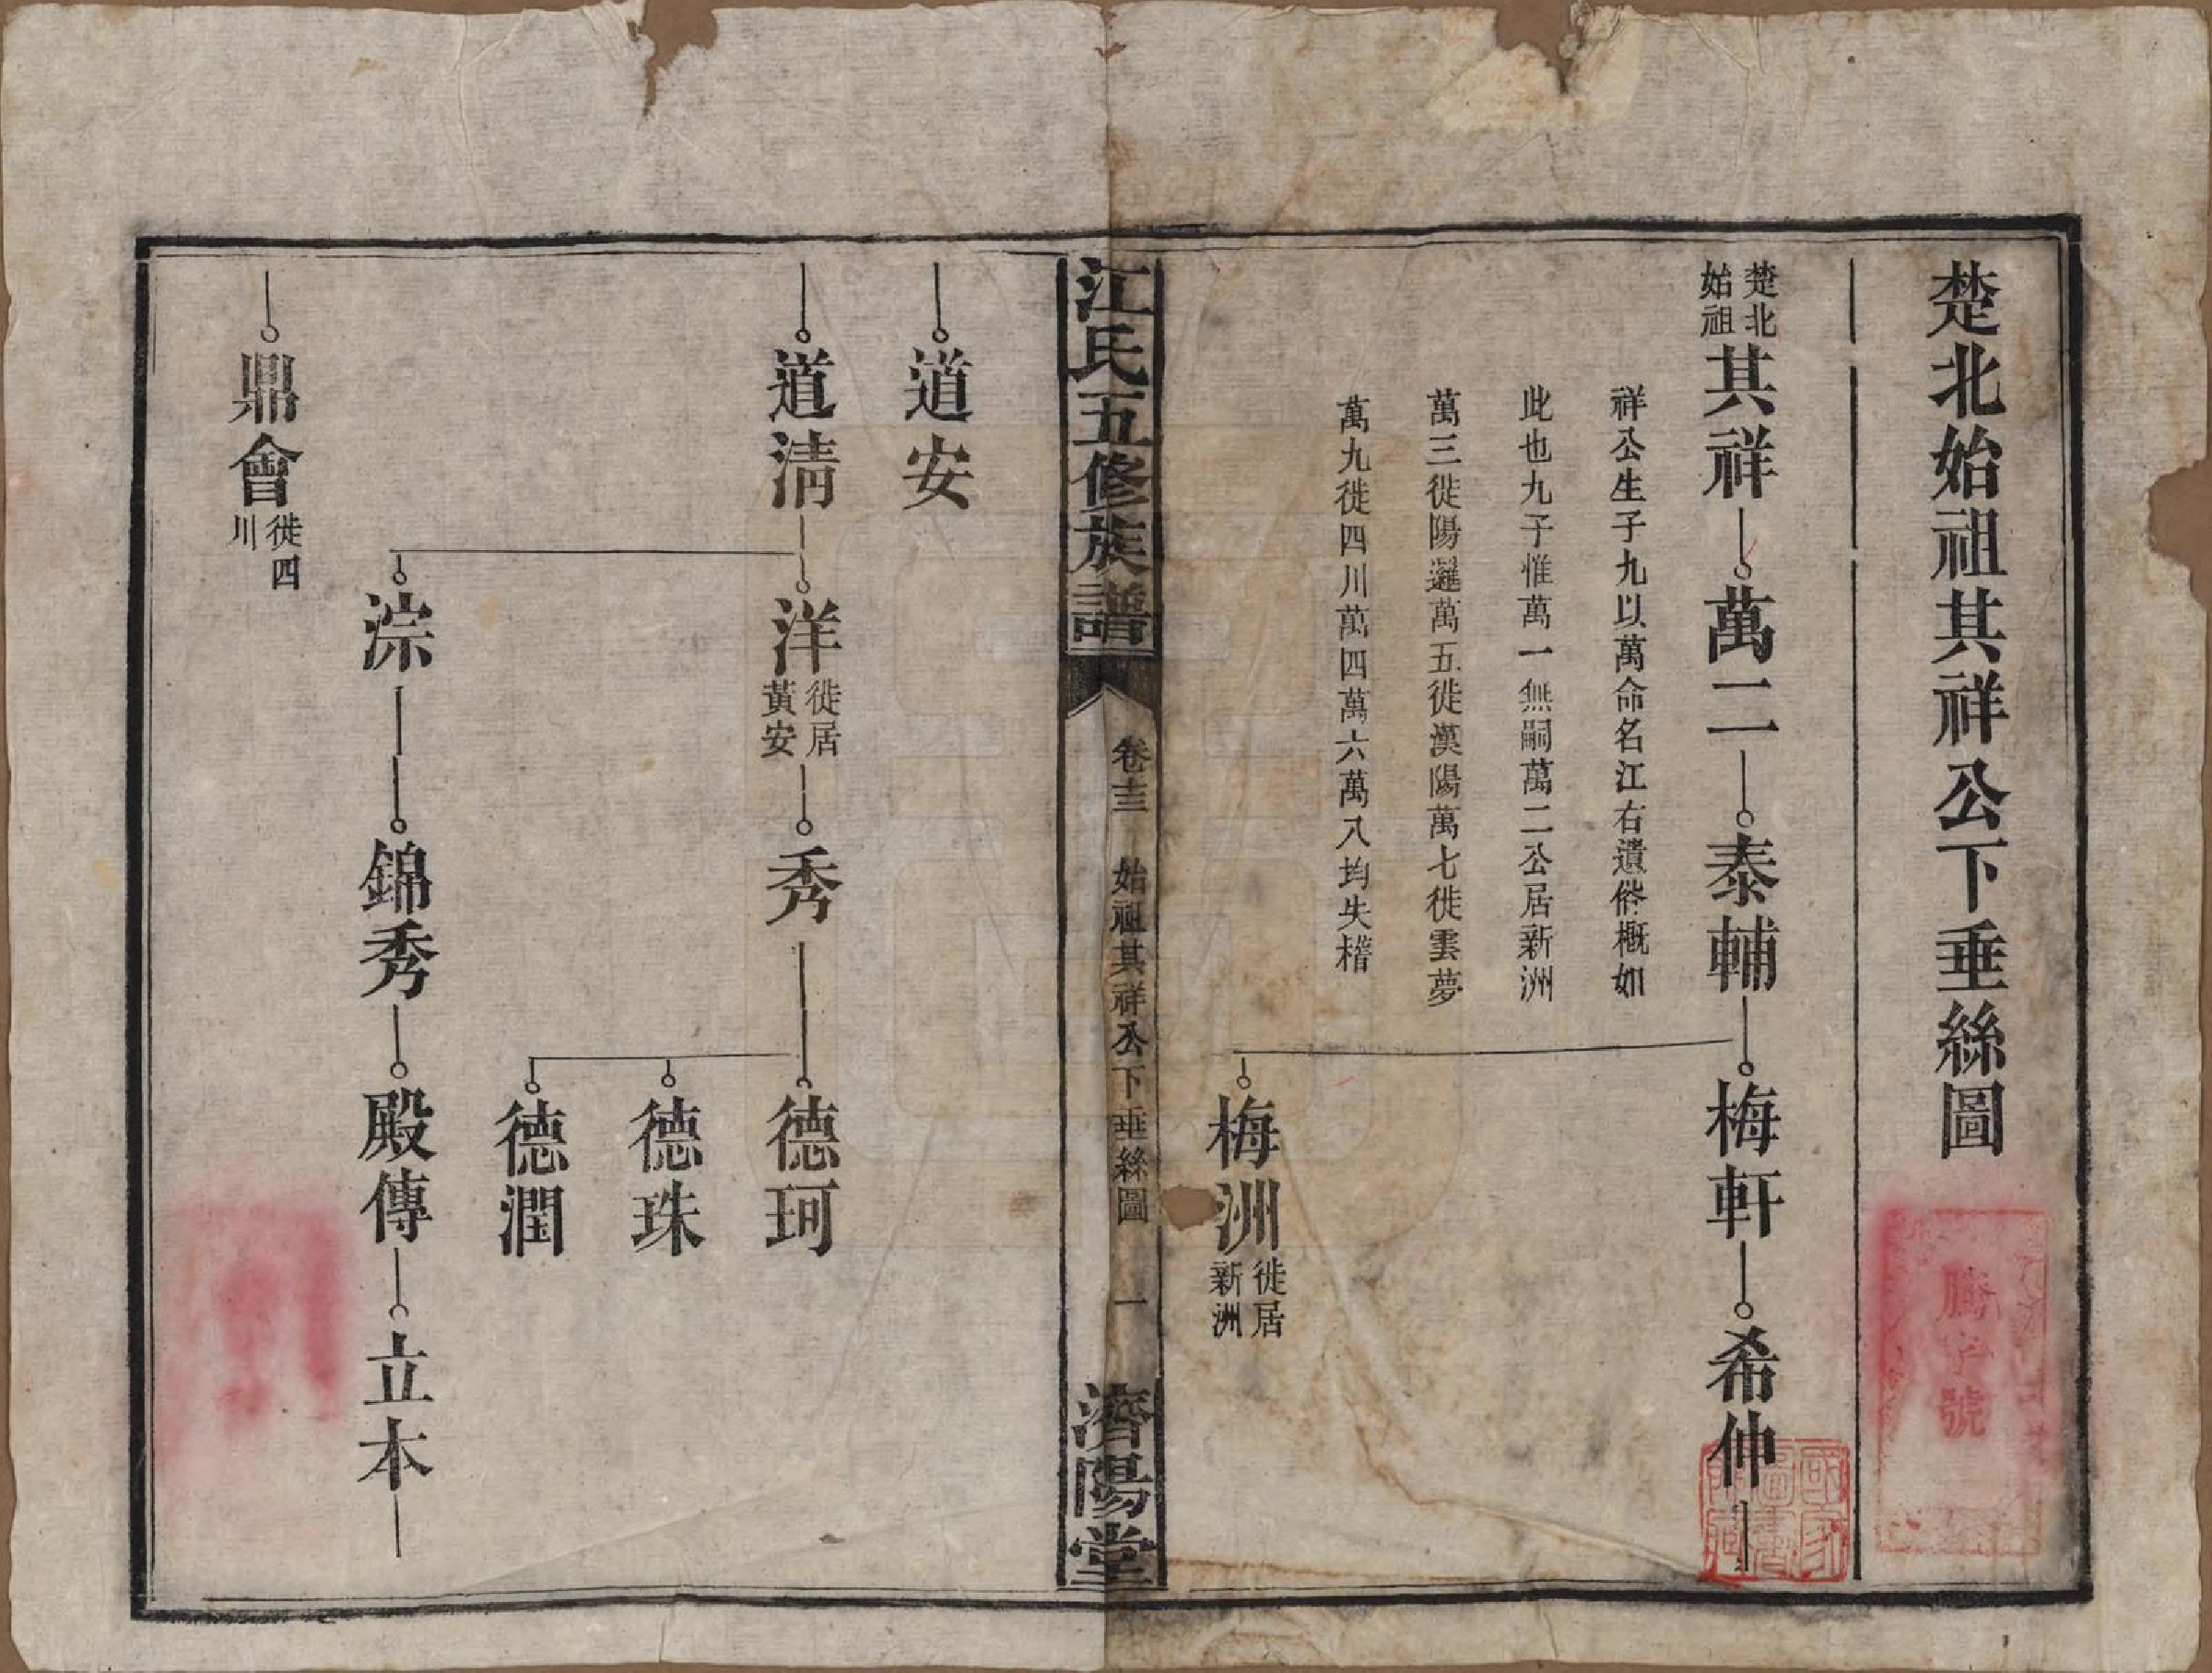 楚北始祖其祥公下垂絲圖
楚北始祖
其祥
萬二
泰輔
梅軒
希仲
祥公生子九以萬命名江右遺俗概如
此也九子惟萬一無嗣萬二公居新洲
萬三徙陽邏萬五徙漢陽萬七徙雲夢
萬九徙四川萬四萬六萬八均失稽
梅洲
徙居新洲
江氏五修族譜
卷十三
始祖其祥公下垂絲圖
一
濟陽堂
道安
道清
洋
徙居黃安
秀
德珂
德珠
德潤
淙
錦秀
殿傳
立本
鼎會
徙四川
號
國家圖書館藏